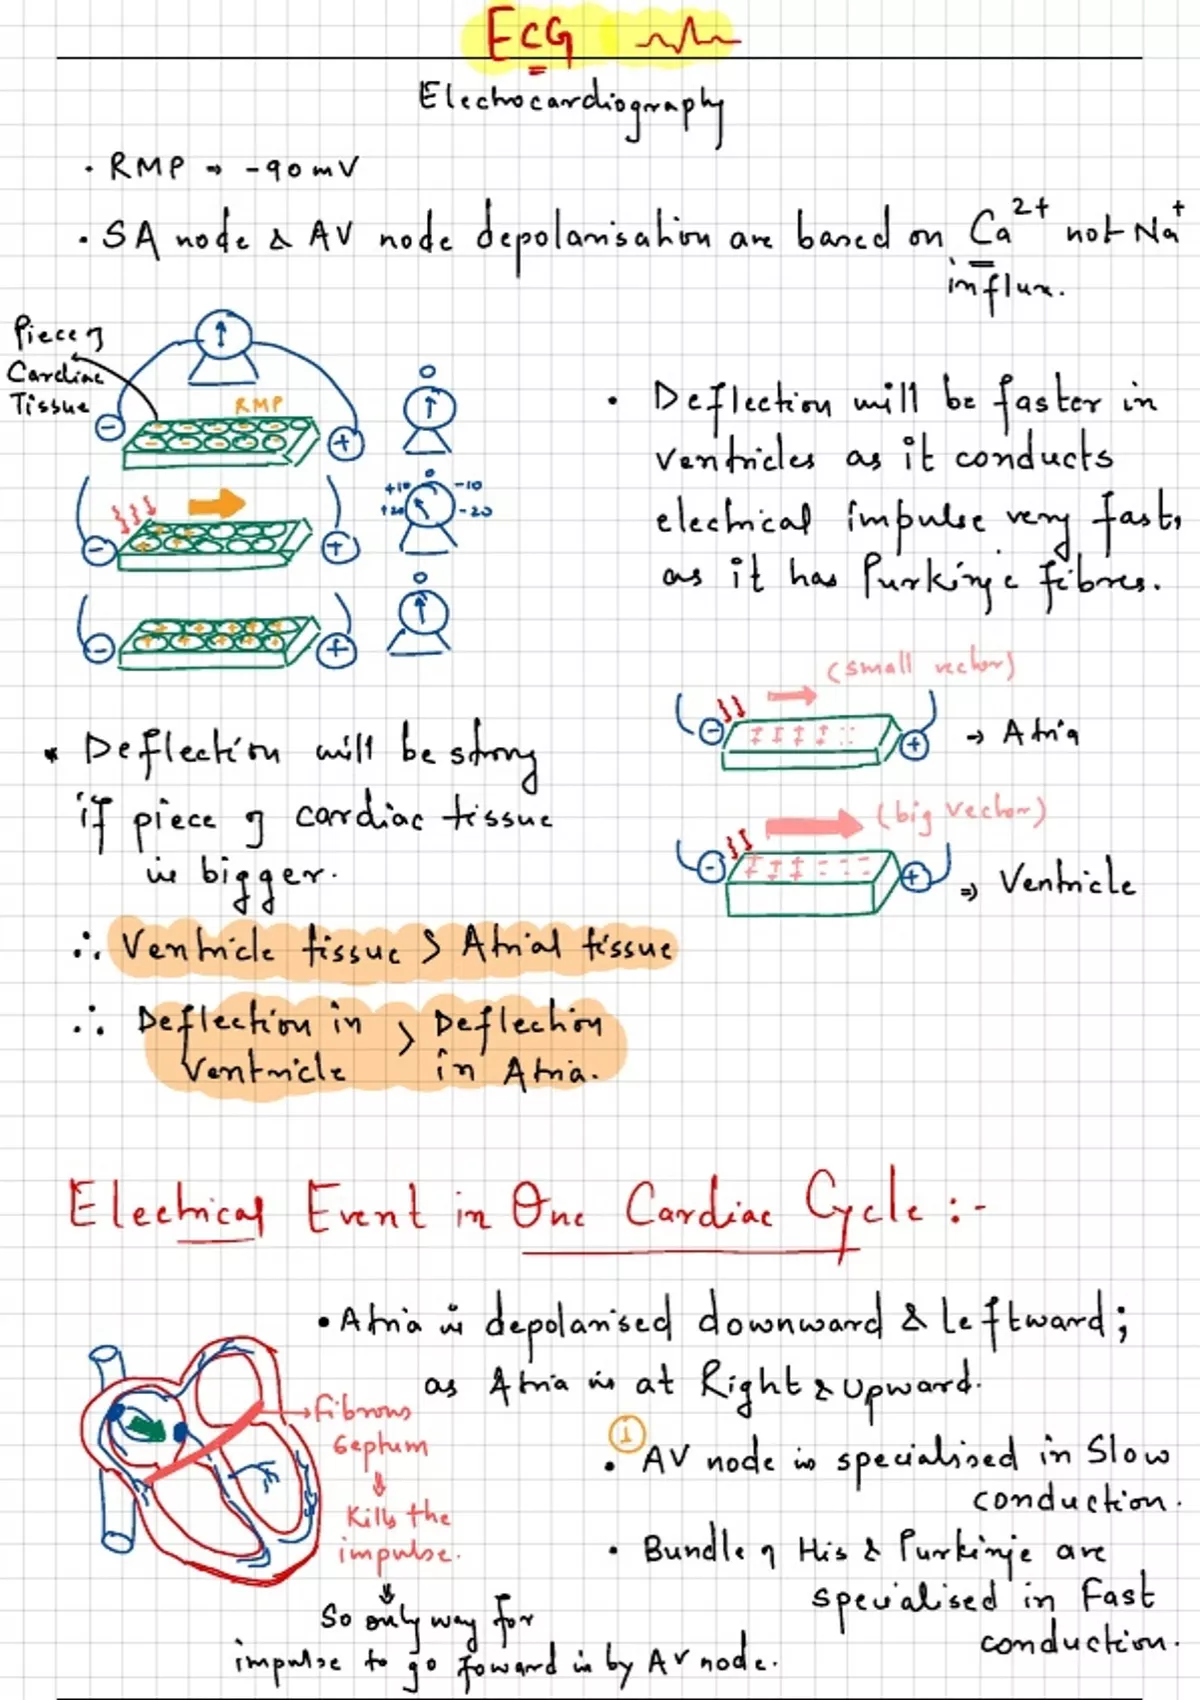 ECG
Electrocardiography
· RMP → -90mV
· SA node & AV node depolarisation are based on Ca2+ not Na+
influx.
Piece of
Cardiac
Tissue
RMP
- +
0
- +
+10 0 -10
+20 -20
- +
0
· Deflection will be faster in
ventricles as it conducts
electrical impulse very fast,
as it has Purkinje fibres.
(small vector)
- + → Atria
(big vector)
- + ⇒ Ventricle
* Deflection will be strong
if piece of cardiac tissue
is bigger.
∴ Ventricle tissue > Atrial tissue
∴ Deflection in > Deflection
Ventricle in Atria.
Electrical Event in One Cardiac Cycle :-
• Atria is depolarised downward & Leftward;
as Atria is at Right & Upward.
→ Fibrous
Septum
↓
Kills the
impulse.
↓
So only way for
impulse to go foward is by AV node.
1
• AV node is specialised in Slow
conduction.
• Bundle of His & Purkinje are
specialised in Fast
conduction.